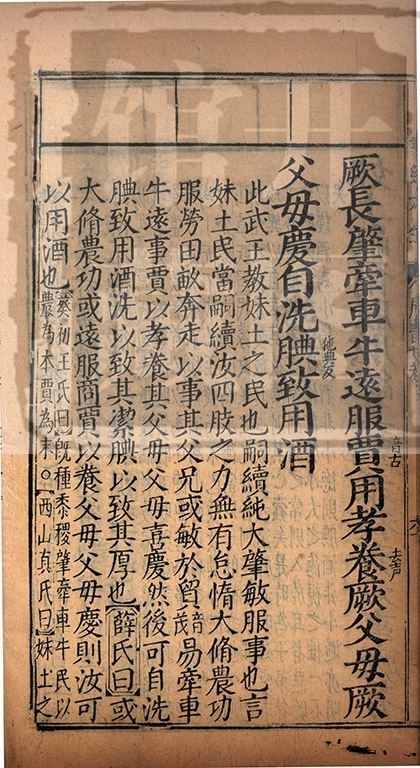 厥長肇牽車牛遠服賈音古用孝養去聲厥父母厥
父母慶自洗腆他典反致用酒
此武王敎妹土之民也嗣續純大肇敏服事也言
妹土民當嗣續汝四肢之力無有怠惰大脩農功
服勞田畝奔走以事其父兄或敏於貿音茂易牽車
牛遠事賈以孝養其父母父母喜慶然後可自洗
腆致用酒洗以致其潔腆以致其厚也薛氏曰或
大脩農功或遠服商賈以養父母父母慶則汝可
以用酒也葵初王氏曰旣種黍稷肇牽車牛民以
農為本賈為末○西山真氏曰妹土之